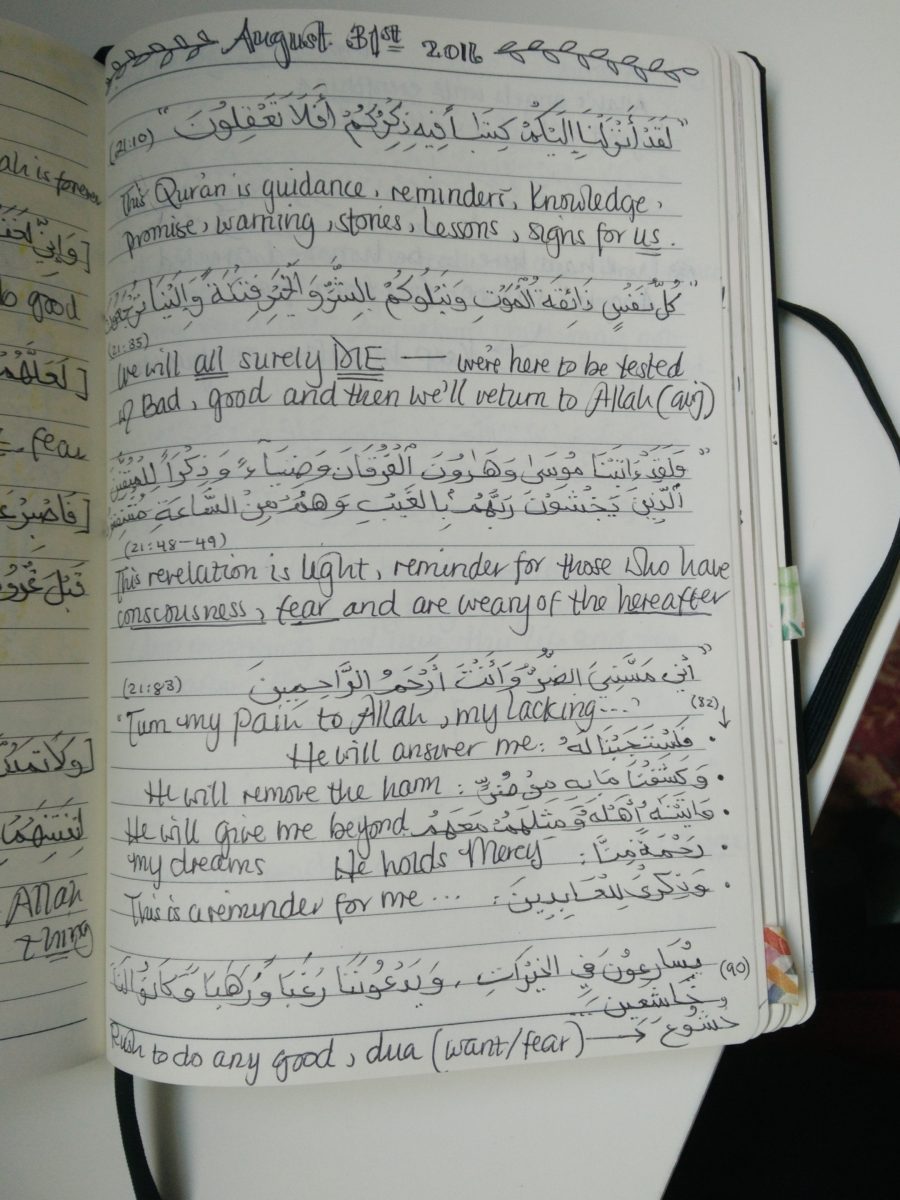 August 31st 2016
"لَقَدْ أَنْزَلْنَا إِلَيْكُمْ كِتَابًا فِيهِ ذِكْرُكُمْ أَفَلَا تَعْقِلُونَ" (21:10)
This Qur'an is guidance, reminders, knowledge,
promise, warning, stories, lessons, signs for us.
كُلُّ نَفْسٍ ذَائِقَةُ الْمَوْتِ وَنَبْلُوكُمْ بِالشَّرِّ وَالْخَيْرِ فِتْنَةً وَإِلَيْنَا تُرْجَعُونَ
(21:35)
We will all surely DIE — we're here to be tested
of Bad, good and then we'll return to Allah (awj)
"وَلَقَدْ ءَاتَيْنَا مُوسَىٰ وَهَارُونَ الْفُرْقَانَ وَضِيَاءً وَذِكْرًا لِلْمُتَّقِينَ
ٱلَّذِينَ يَخْشَوْنَ رَبَّهُمْ بِالْغَيْبِ وَهُمْ مِنَ السَّاعَةِ مُشْفِقُونَ
(21:48-49)
This revelation is light, reminder for those who have
conscousness, fear and are weary of the hereafter
"أَنِّي مَسَّنِيَ الضُّرُّ وَأَنْتَ أَرْحَمُ الرَّاحِمِينَ (21:83)
"Turn my pain to Allah, my lacking..." (82)↓
• فَاسْتَجَبْنَا لَهُ : He will answer me
• وَكَشَفْنَا مَا بِهِ مِنْ ضُرٍّ : He will remove the harm
• وَءَاتَيْنَٰهُ أَهْلَهُ وَمِثْلَهُمْ مَعَهُمْ He will give me beyond
my dreams
• رَحْمَةً مِنَّا : He holds Mercy
• وَذِكْرَىٰ لِلْعَابِدِينَ : This is a reminder for me ...
(90) يُسَارِعُونَ فِي الْخَيْرَاتِ، وَيَدْعُونَنَا رَغَبًا وَرَهَبًا وَكَانُوا لَنَا
خَاشِعِينَ ...
Rush to do any good, dua (want/fear) → خشوع
ah is forever
good
fear
Allah
thing